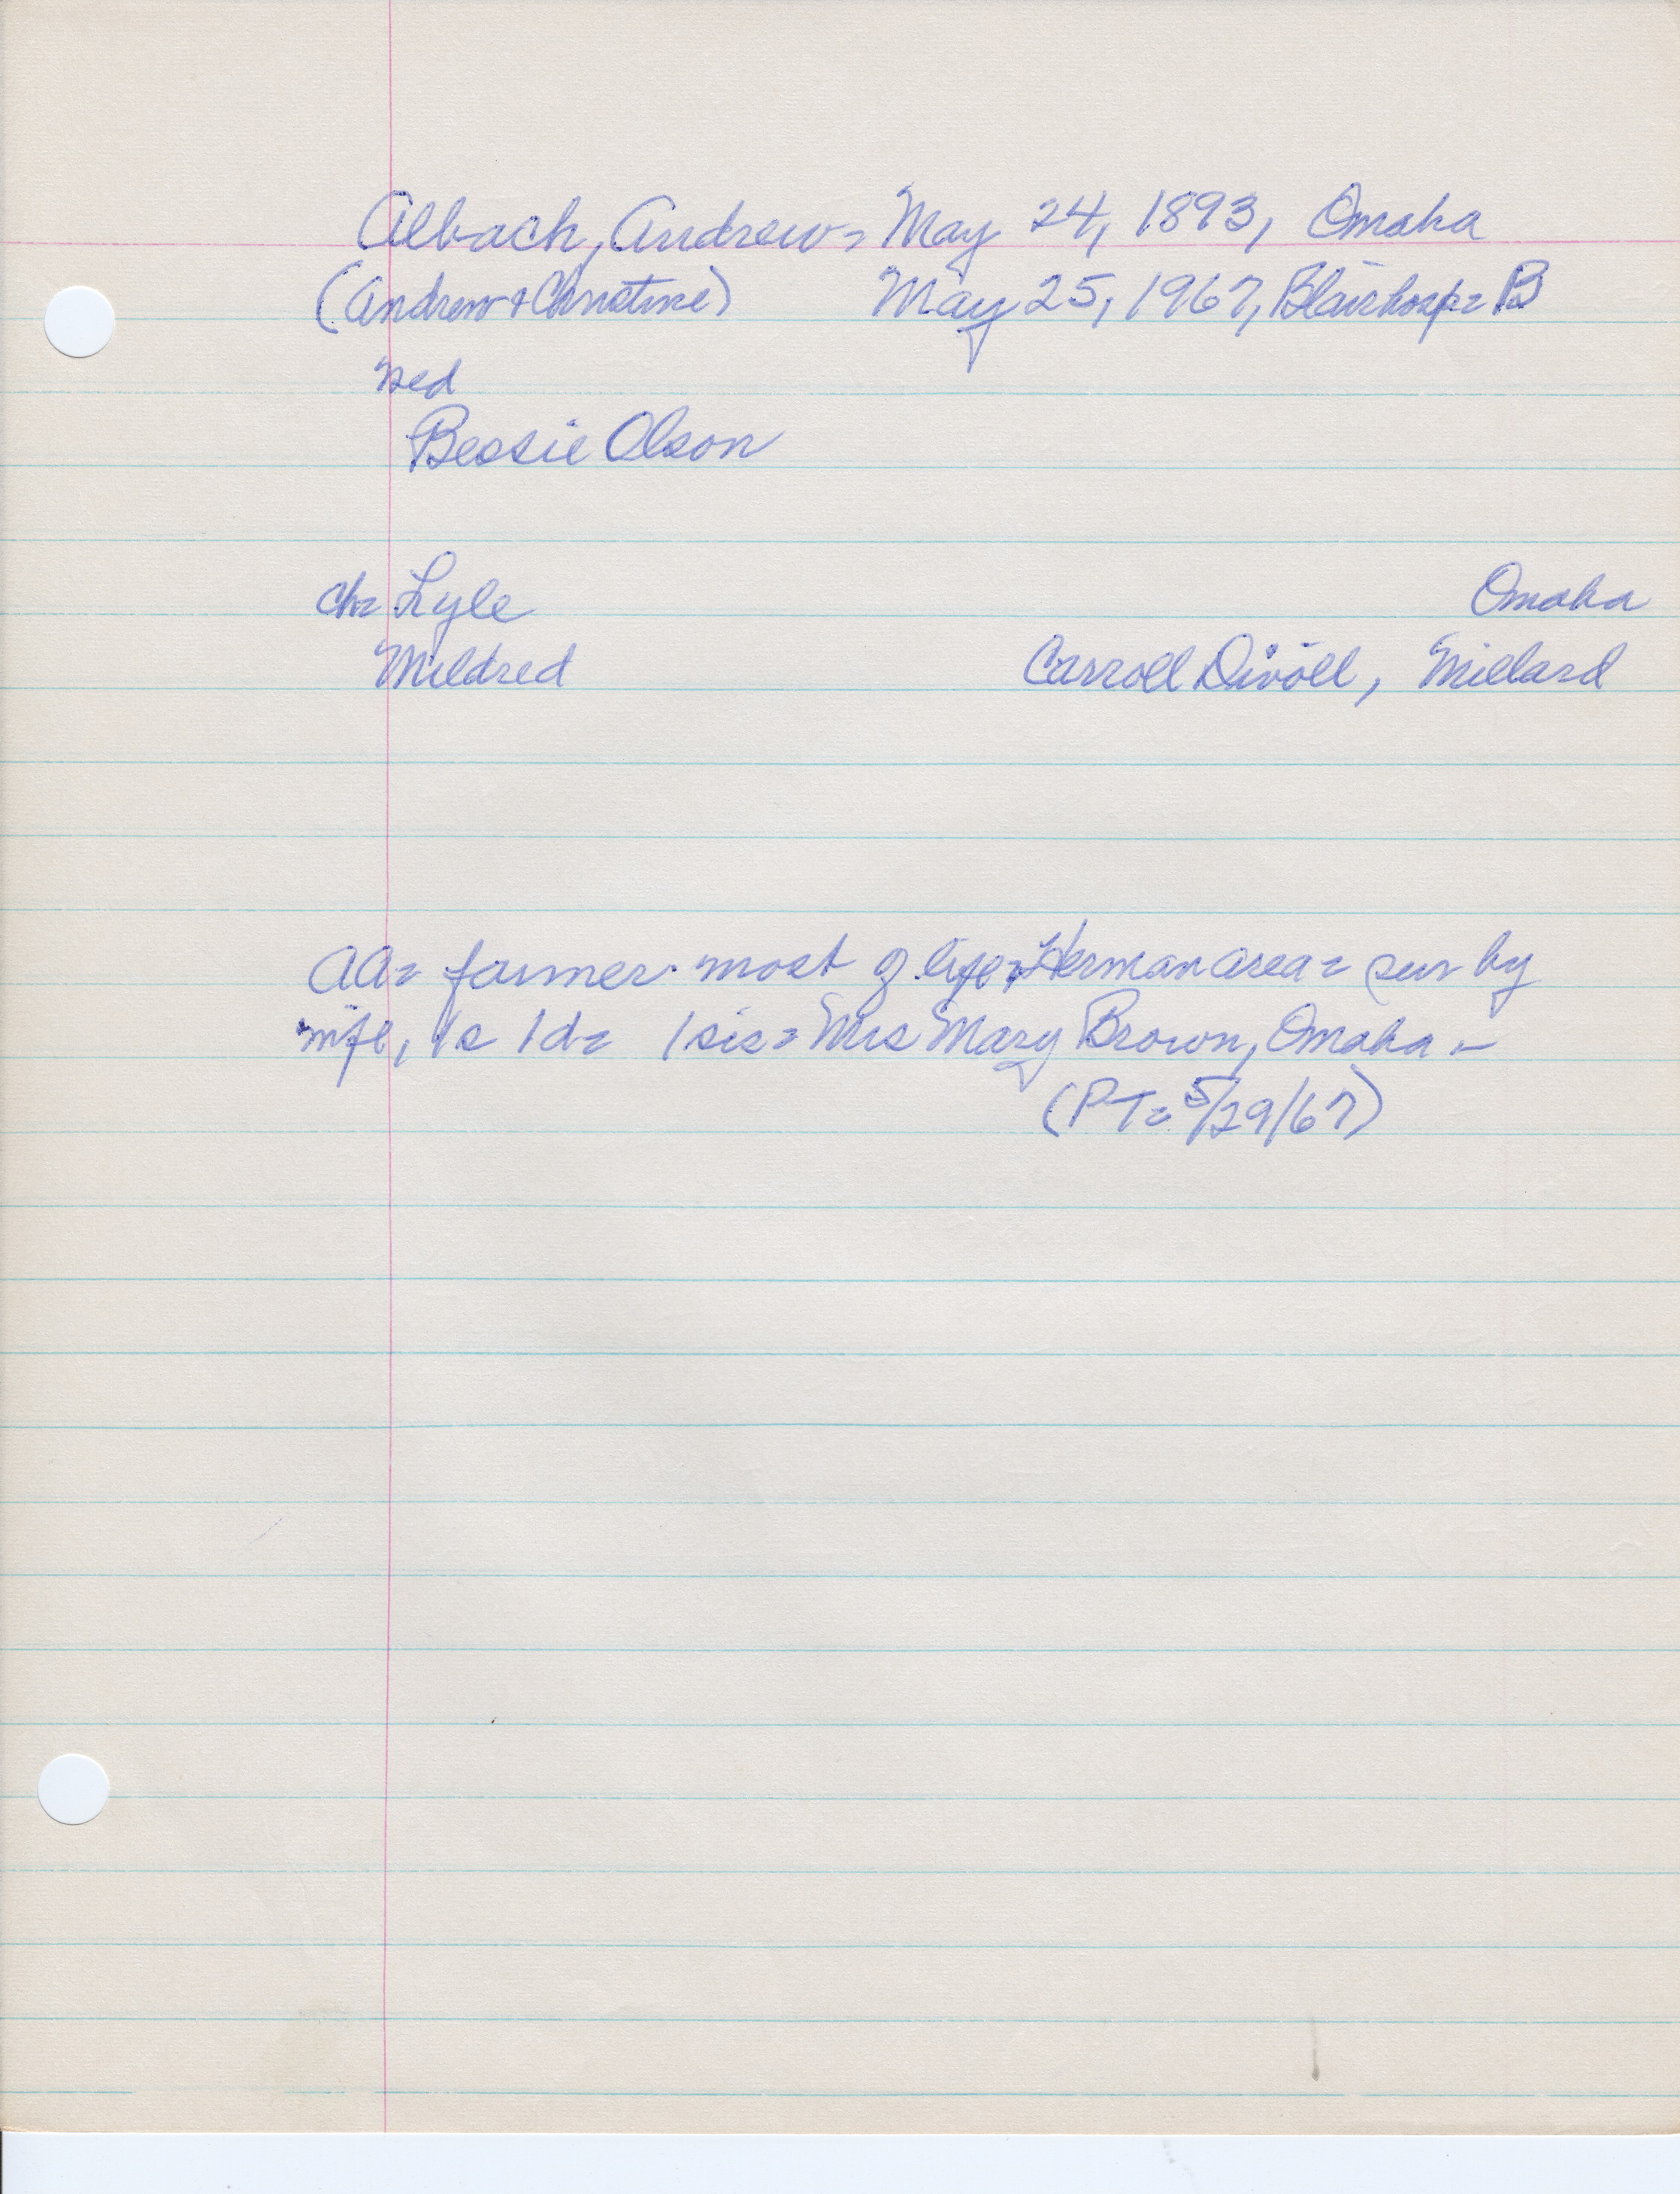 Albach, Andrew= May 24, 1893, Omaha
(Andrew & Christine) May 25, 1967, Blair hosp= B
wed
Bessie Olson
ch= Lyle Omaha
Mildred Carroll Divoll, Millard
AA= farmer most of life= Herman area= sur by
wife, 1s 1d= 1 sis= Mrs Mary Brown, Omaha -
(PT= 5/29/67)